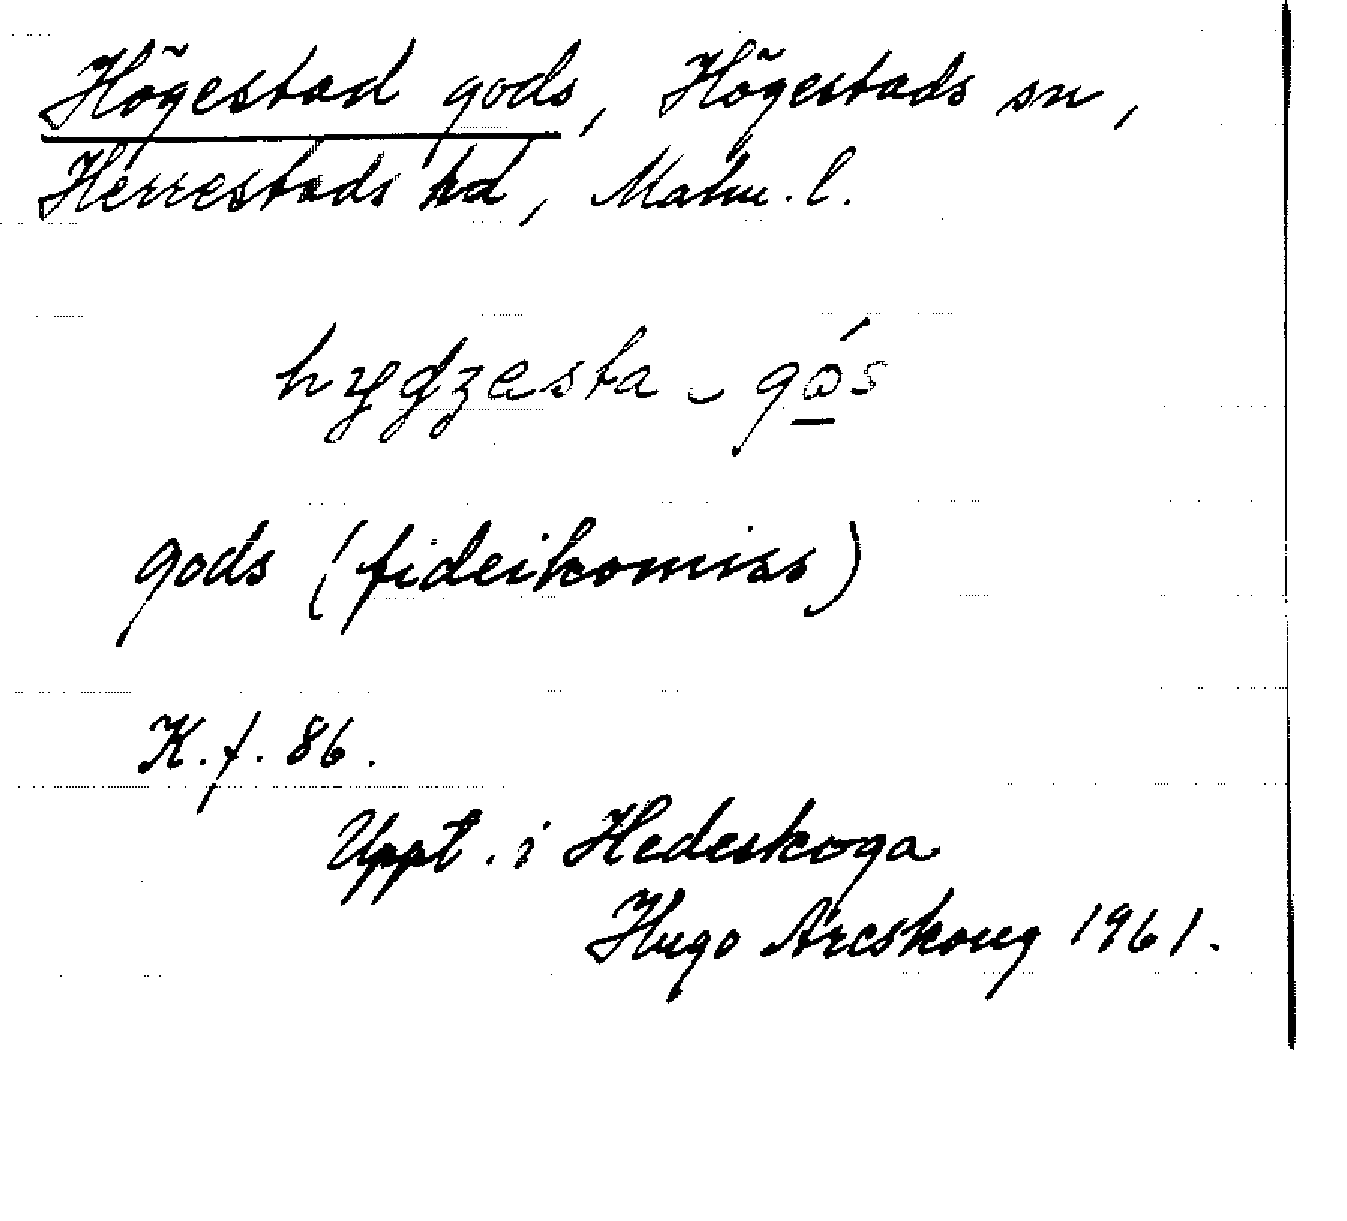 Högestad gods, Högestads sn,
Herrestads hd, Malm. l.
gods (fideikomiss)
K. f. 86.
Uppt. i Hedeskoga
Hugo Areskoug 1961.